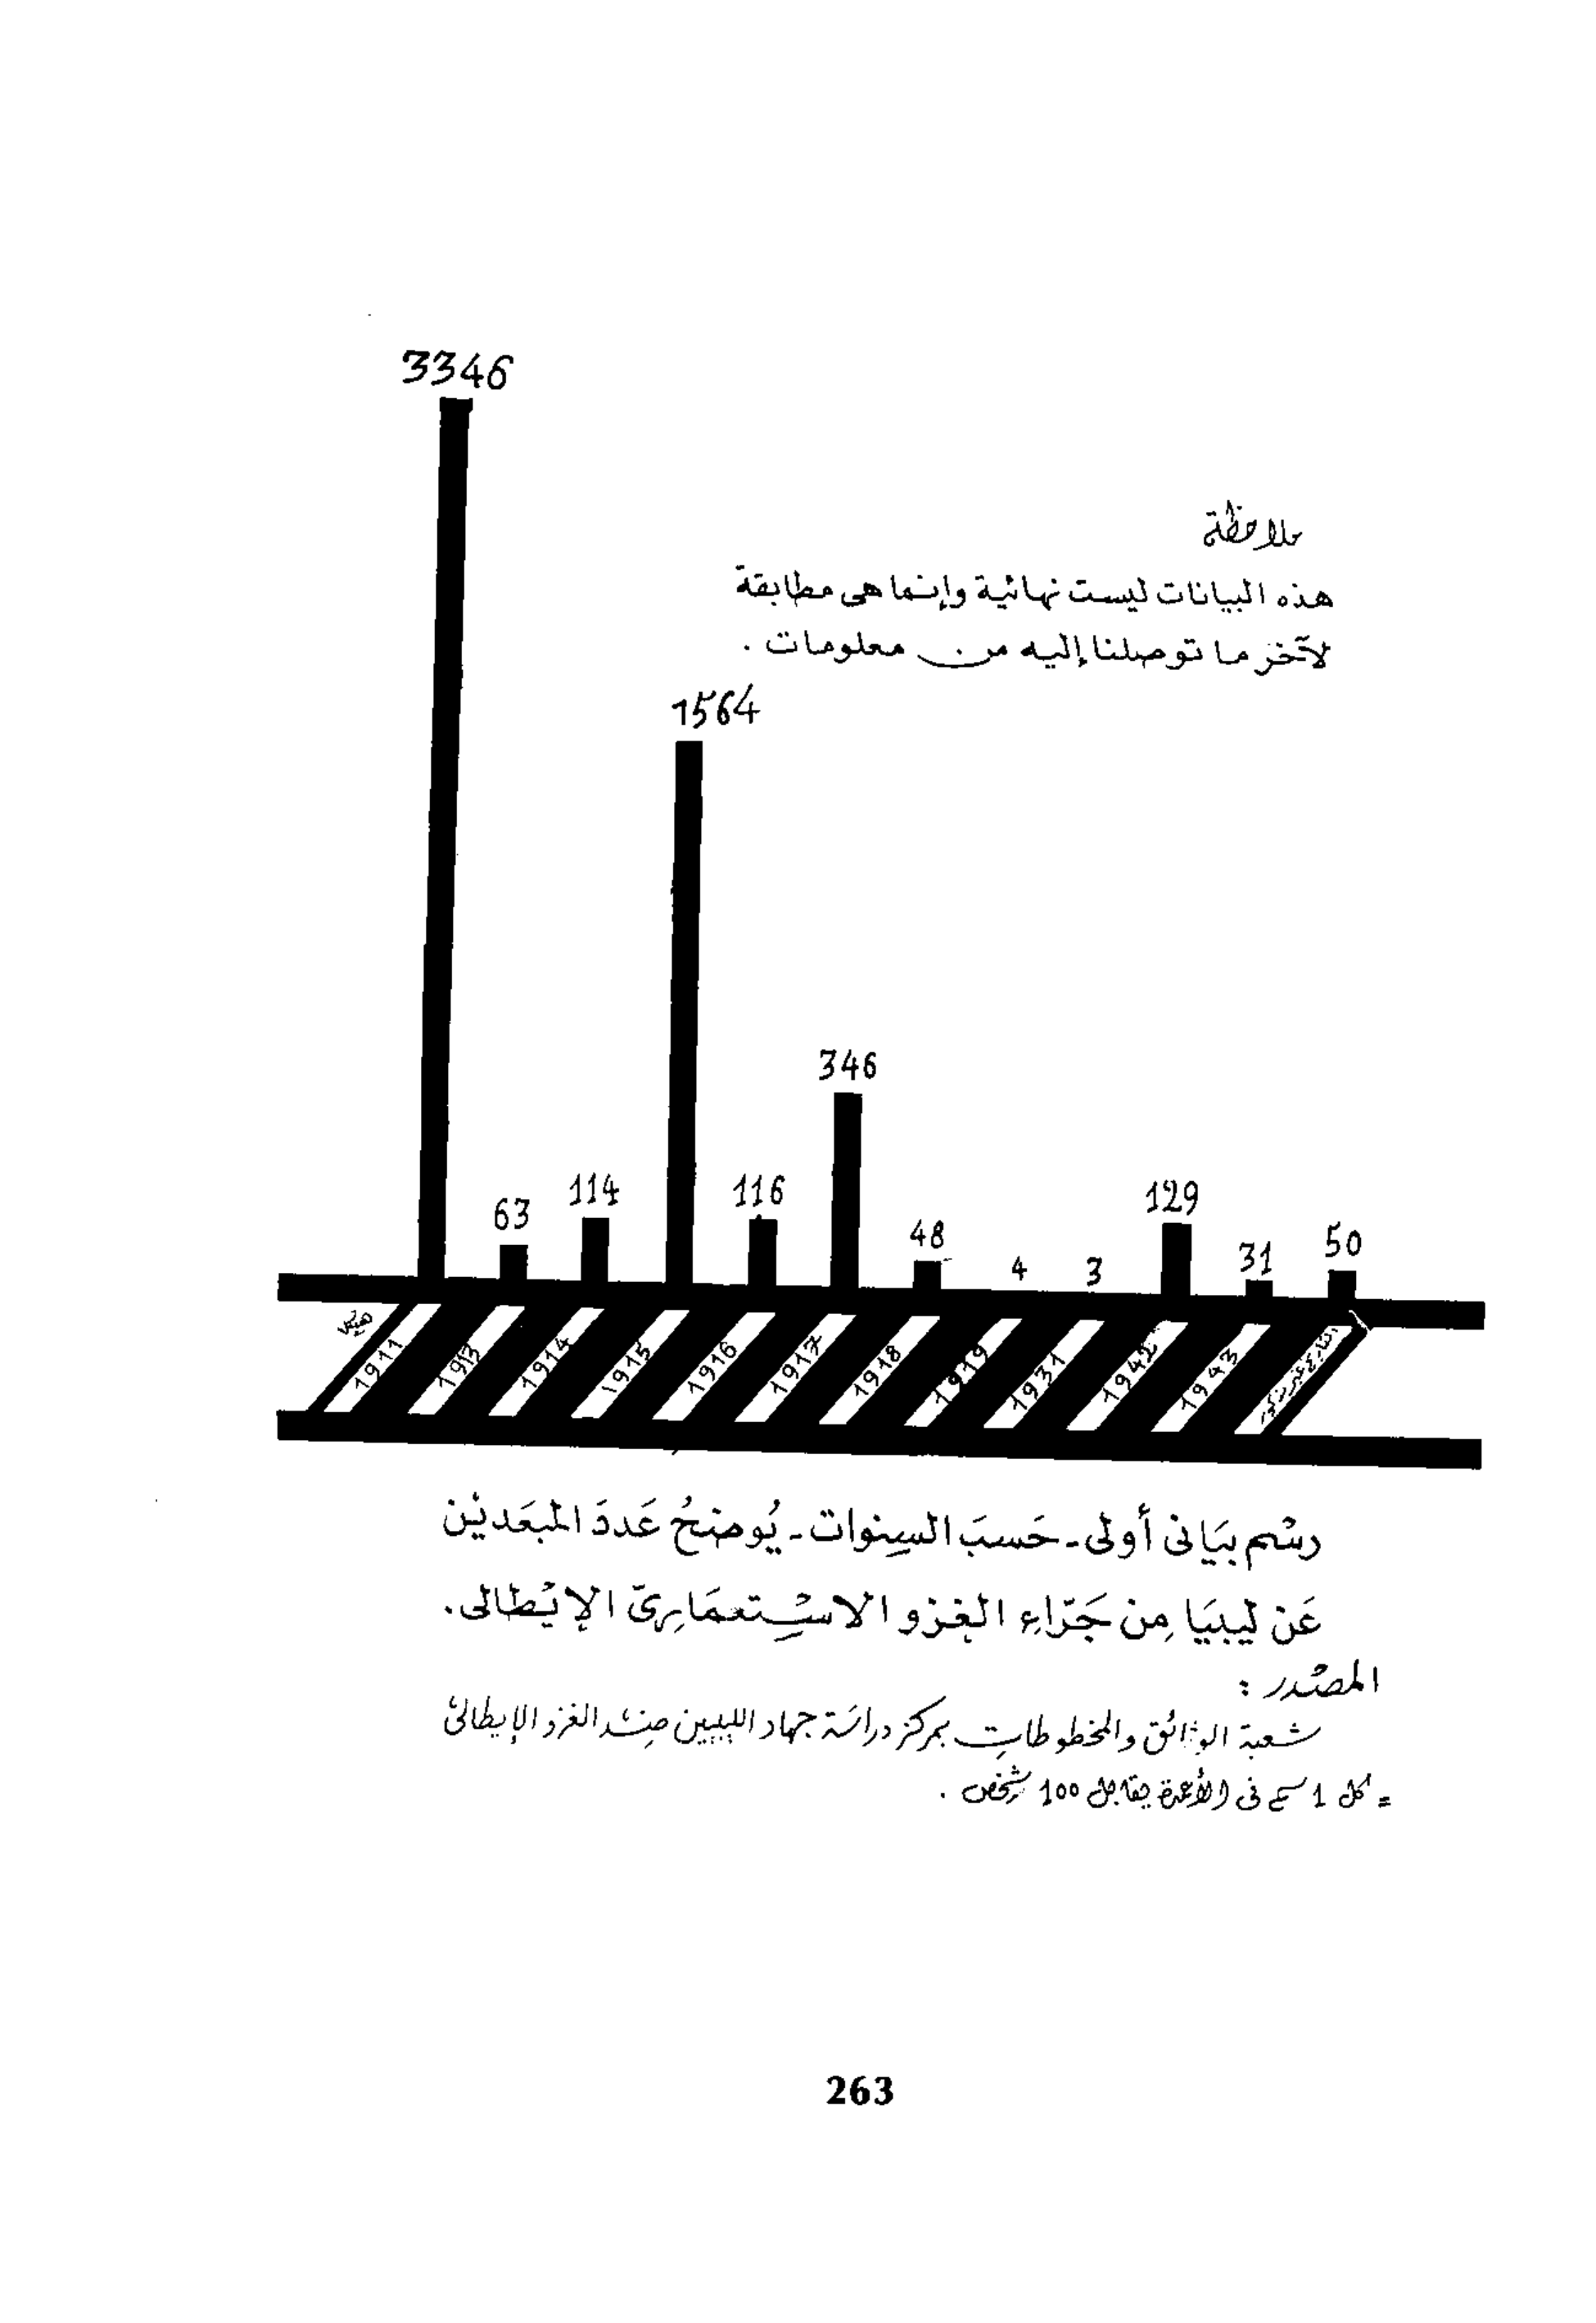 3346
ملاحظة
هذه البيانات ليست نهائية وإنما هى مطابقة
لآخر ما توصلنا إليه من معلومات .
1564
346
63 114 116 48 4 3 129 31 50
1911 1913 1914 1915 1916 1917 1918 1919 1931 1942 1943
رسْم بيَانى أولى - حَسبَ السِنوات - يُوضحُ عَددَ المبعَدينْ
عَن ليبيَا مِن جَرّاءِ الغِزو الاسْتِعمَارِىّ الإيْطالى.
المصْدر :
شعبة الوثائق والمخطوطاتِ بمركز دراسَة جهاد الليبيين ضِدّ الغزو الإيطالىّ
= كل 1 سم فى الأعمدة يقابل 100 شخص .
263